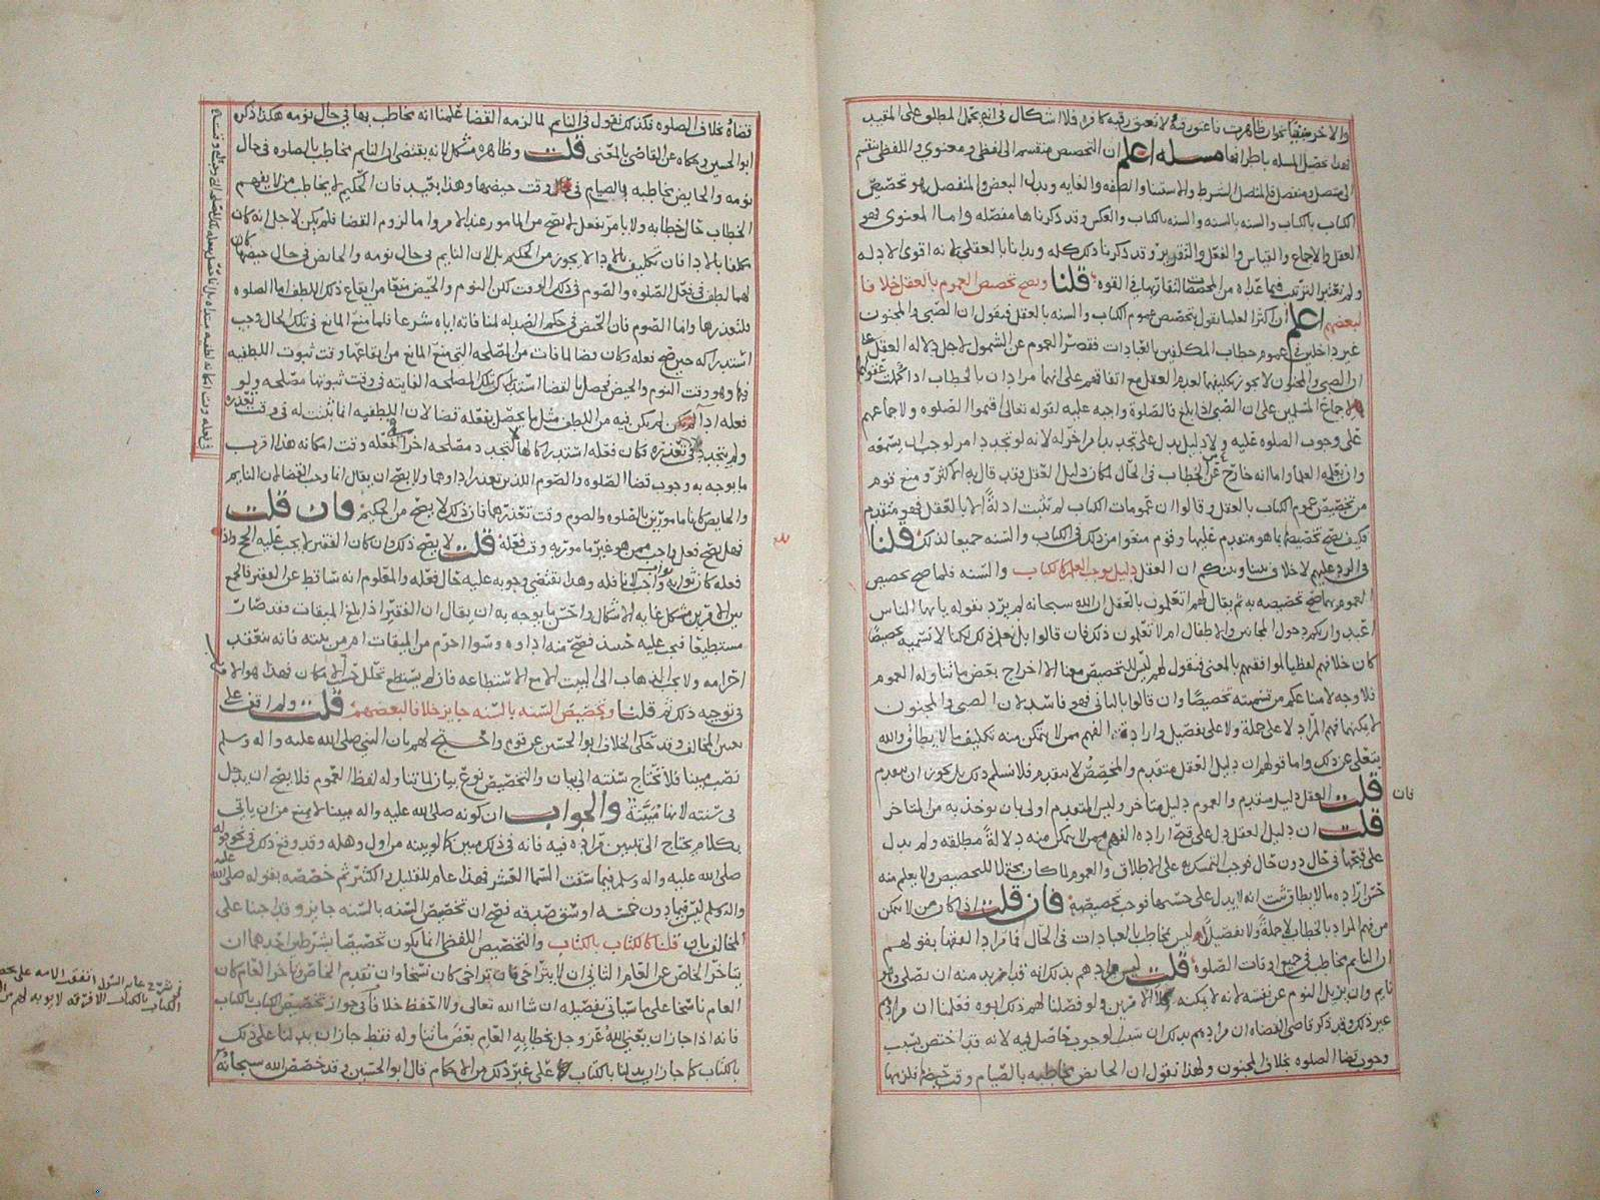 فهذا تحصيل المسله باطرافها مسله اعلم ان التخصيص منقسم الى لفظي ومعنوي واللفظي ينقسم
الى متصل ومنفصل فالمتصل الشرط والاستثنا والصفه والغايه وبدل البعض والمنفصل هو تخصيص
الكتاب بالكتاب والسنه بالسنه والسنه بالكتاب والعكس وقد ذكرناها مفصله واما المعنوي فهو
العقل والاجماع والقياس والفعل والتقرير وقد ذكرنا ذلك كله وبدانا بالعقلي لانه اقوى الادله
قلنا ويصح تخصيص العموم بالعقل خلافا
لبعضهم اعلم ان اكثر العلما يقول بتخصيص عموم الكتاب والسنه بالعقل فيقول ان الصبي والمجنون
غير داخلين في عموم خطاب المكلفين العبادات فقصر العموم عن الشمول لاجل دلاله العقل على
ان الصبي والمجنون لا يجوز تكليفهما
لاجماع المسلمين على ان الصبي اذا بلغ فالصلوة واجبه عليه لقوله تعالى اقيموا الصلوه ولاجماعهم
على وجوب الصلوه عليه ولا دليل يدل على تجدد امر اخر له لانه لو تجدد امر لوجب ان يسمعه
من تخصيص عموم الكتاب بالعقل وقالوا ان عمومات الكتاب لم تثبت ادلة الا بالعقل فهو متقدم
فكيف يصح تخصيصها بما هو متقدم عليها وقوم منعوا من ذلك في الكتاب والسنه جميعا لذلك قلنا
في الرد عليهم لا خلاف بيننا وبينكم ان العقل دليل يوجب العلم كالكتاب والسنه فلما صح تخصيص
العموم بهما صح تخصيصه به ثم يقال لهم اتعلمون بالعقل ان الله سبحانه لم يرد بقوله يا ايها الناس
اعبدوا ربكم دخول المجانين والاطفال ام لا تعلمون ذلك فان قالوا بل نعلم ذلك لكنا لا نسميه تخصيصا
كان خلافهم لفظيا لموافقتهم بالمعنى فيقول لهم ليس للتخصيص معنا الا اخراج بعض ما تناوله العموم
فلا وجه لامتناعكم من تسميته تخصيصا وان قالوا بالثاني فهو فاسد لان الصبي والمجنون
لا يمكنهما فهم المراد لا على جملة ولا على تفصيل وارادة الفهم ممن لا يتمكن منه تكليف ما لا يطاق والله
يتعالى عن ذلك واما قولهم ان دليل العقل متقدم والمخصص لا يتقدم فلا نسلم ذلك بل يجوز ان يتقدم
قلت العقل دليل متقدم والعموم دليل متاخر وليس المتقدم اولى بان يوخذ به من المتاخر
فان
قلت ان دليل العقل دل على قبح اراده الفهم ممن لا يتمكن منه دلالة مطلقه ولم يدل
على قبحها في حال دون حال فوجب التمسك به على الاطلاق والعموم لما كان محتملا للتخصيص ولا يعلم منه
حسن اراده ما لا يطاق ثبت انه لا يدل على حسنها فوجب تخصيصه فان قلت اذا كان من لا يمكن
من فهم المراد بالخطاب لا جملة ولا تفصيلا ليس يخاطب بالعبادات في الحال فما مراد الفقها بقولهم
ان النايم مخاطب في جميع اوقات الصلوة قلت ليس مرادهم بذلك انه قد اريد منه ان يصلي وهو
نايم وان يزيل النوم عن نفسه لانه لا يمكنه كلا الامرين ولو فصلنا لهم ذلك لابوه فعلمنا ان مرادهم
غير ذلك وقد ذكر قاضي القضاه ان مرادهم بذلك ان سبب الوجوب حاصل فيه لانه قد اختص بسبب
وجوب قضا الصلوه بخلاف المجنون ولهذا نقول ان الحايض مخاطبه بالصيام وقت حيضها فلزمها
قضاه بخلاف الصلوه فكذلك نقول في النايم لما لزمه القضا علمنا انه مخاطب بها في حال نومه هكذا ذكره
ابو الحسين وحكاه عن القاضي بالمعنى قلت وظاهره مشكل لانه يقتضي ان النايم مخاطب بالصلوه في حال
نومه والحايض مخاطبه بالصيام في وقت حيضها وهذا بعيد فان الحكيم لا يخاطب من لا يفهم
الخطاب حال خطابه ولا يامر بفعل لا يصح من المامور عند الامر واما لزوم القضا فلم يكن لاجل انه كان
مكلفا بالادا فان تكليفه بالادا لا يجوز من الحكيم بل لان النايم في حال نومه والحائض في حال حيضها كان
لهما لطف في فعل الصلوه والصوم في ذلك الوقت لكن النوم والحيض منعا من ايقاع ذلك اللطف اما الصلوه
فلتعذرها واما الصوم فان الحيض في حكم الضد له لمنافاته اياه شرعا فلما منع المانع في تلك الحال وجب
استدراكه حين صح فعله وكان قضا لما فات من المصلحه التي منع المانع من ايقاعها وقت ثبوت اللطفيه
فيها وهو وقت النوم والحيض فحصل بالقضا استدراك تلك المصلحه الفايته في وقت ثبوتها مصلحه ولو
ما يوجه به وجوب قضا الصلوه والصوم اللذين تعذر اداوهما ولا يصح ان يقال انما وجب القضا لان النايم
والحايض كانا مامورين بالصلوه والصوم وقت تعذرهما فان ذلك لا يصح من الحكيم فان قلت
فهل يصح فعل واجب ممن هو غير مامور به وقت فعله قلت لا يصح ذلك وان كان الفقير لا يجب عليه الحج واذا
فعله كان ثوابه ثواب واجب لا نافله وهذا يقتضي وجوبه عليه حال فعله والمعلوم انه ساقط عن الفقير فالجمع
بين الامرين مشكل غايه الاشكال واحسن ما يوجه به ان يقال ان الفقير اذا بلغ الميقات فقد صار
مستطيعا فيجب عليه حينئذ فصح منه اداوه وسوا احرم من الميقات ام من بيته فانه ينعقد
احرامه ولا يجب الذهاب الى البيت الا مع الاستطاعه فان لم يستطع تحلل حسب الامكان فهذا هو الاقرب
في توجيه ذلك ثم قلنا وتخصيص السنه بالسنه جايز خلافا لبعضهم قلت ولم اقف على
تعيين المخالف وقد حكى الخلاف ابو الحسين عن قوم واحتج لهم بان النبي صلى الله عليه واله وسلم
نصب مبينا فلا تحتاج سنته الى بيان والتخصيص نوع بيان لما تناوله لفظ العموم فلا يصح ان يدخل
في سنته لانها مبينة والجواب ان كونه صلى الله عليه واله مبينا لا يمنع من ان ياتي
بكلام يحتاج الى تبيين مراده فيه فانه في ذلك مبين كما لو بينه من اول وهله وقد وقع ذلك في نحو قوله
صلى الله عليه واله وسلم فيما سقت السما العشر فهذا عام للقليل والكثير ثم خصصه بقوله صلى الله عليه
واله وسلم ليس فيما دون خمسه اوسق صدقه فصح ان تخصيص السنه بالسنه جايز
المخالف بان قلنا كالكتاب بالكتاب والتخصيص اللفظي انما يكون تخصيصا بشرطين احدهما ان
يتاخر الخاص عن العام الثاني ان لا يتراخى فان تراخى كان نسخا وان تقدم الخاص وتاخر العام كان
العام ناسخا على ما سياتي تفصيله ان شا الله تعالى ولا احفظ خلافا في جواز تخصيص الكتاب بالكتاب
فانه اذا جاز ان يعني الله عز وجل بخطابه العام بعض ما تناوله فقط جاز ان يدلنا على ذلك
بالكتاب كما جاز ان يدلنا بالكتاب على غير ذلك من الاحكام قال ابو الحسين وقد خصص الله سبحانه